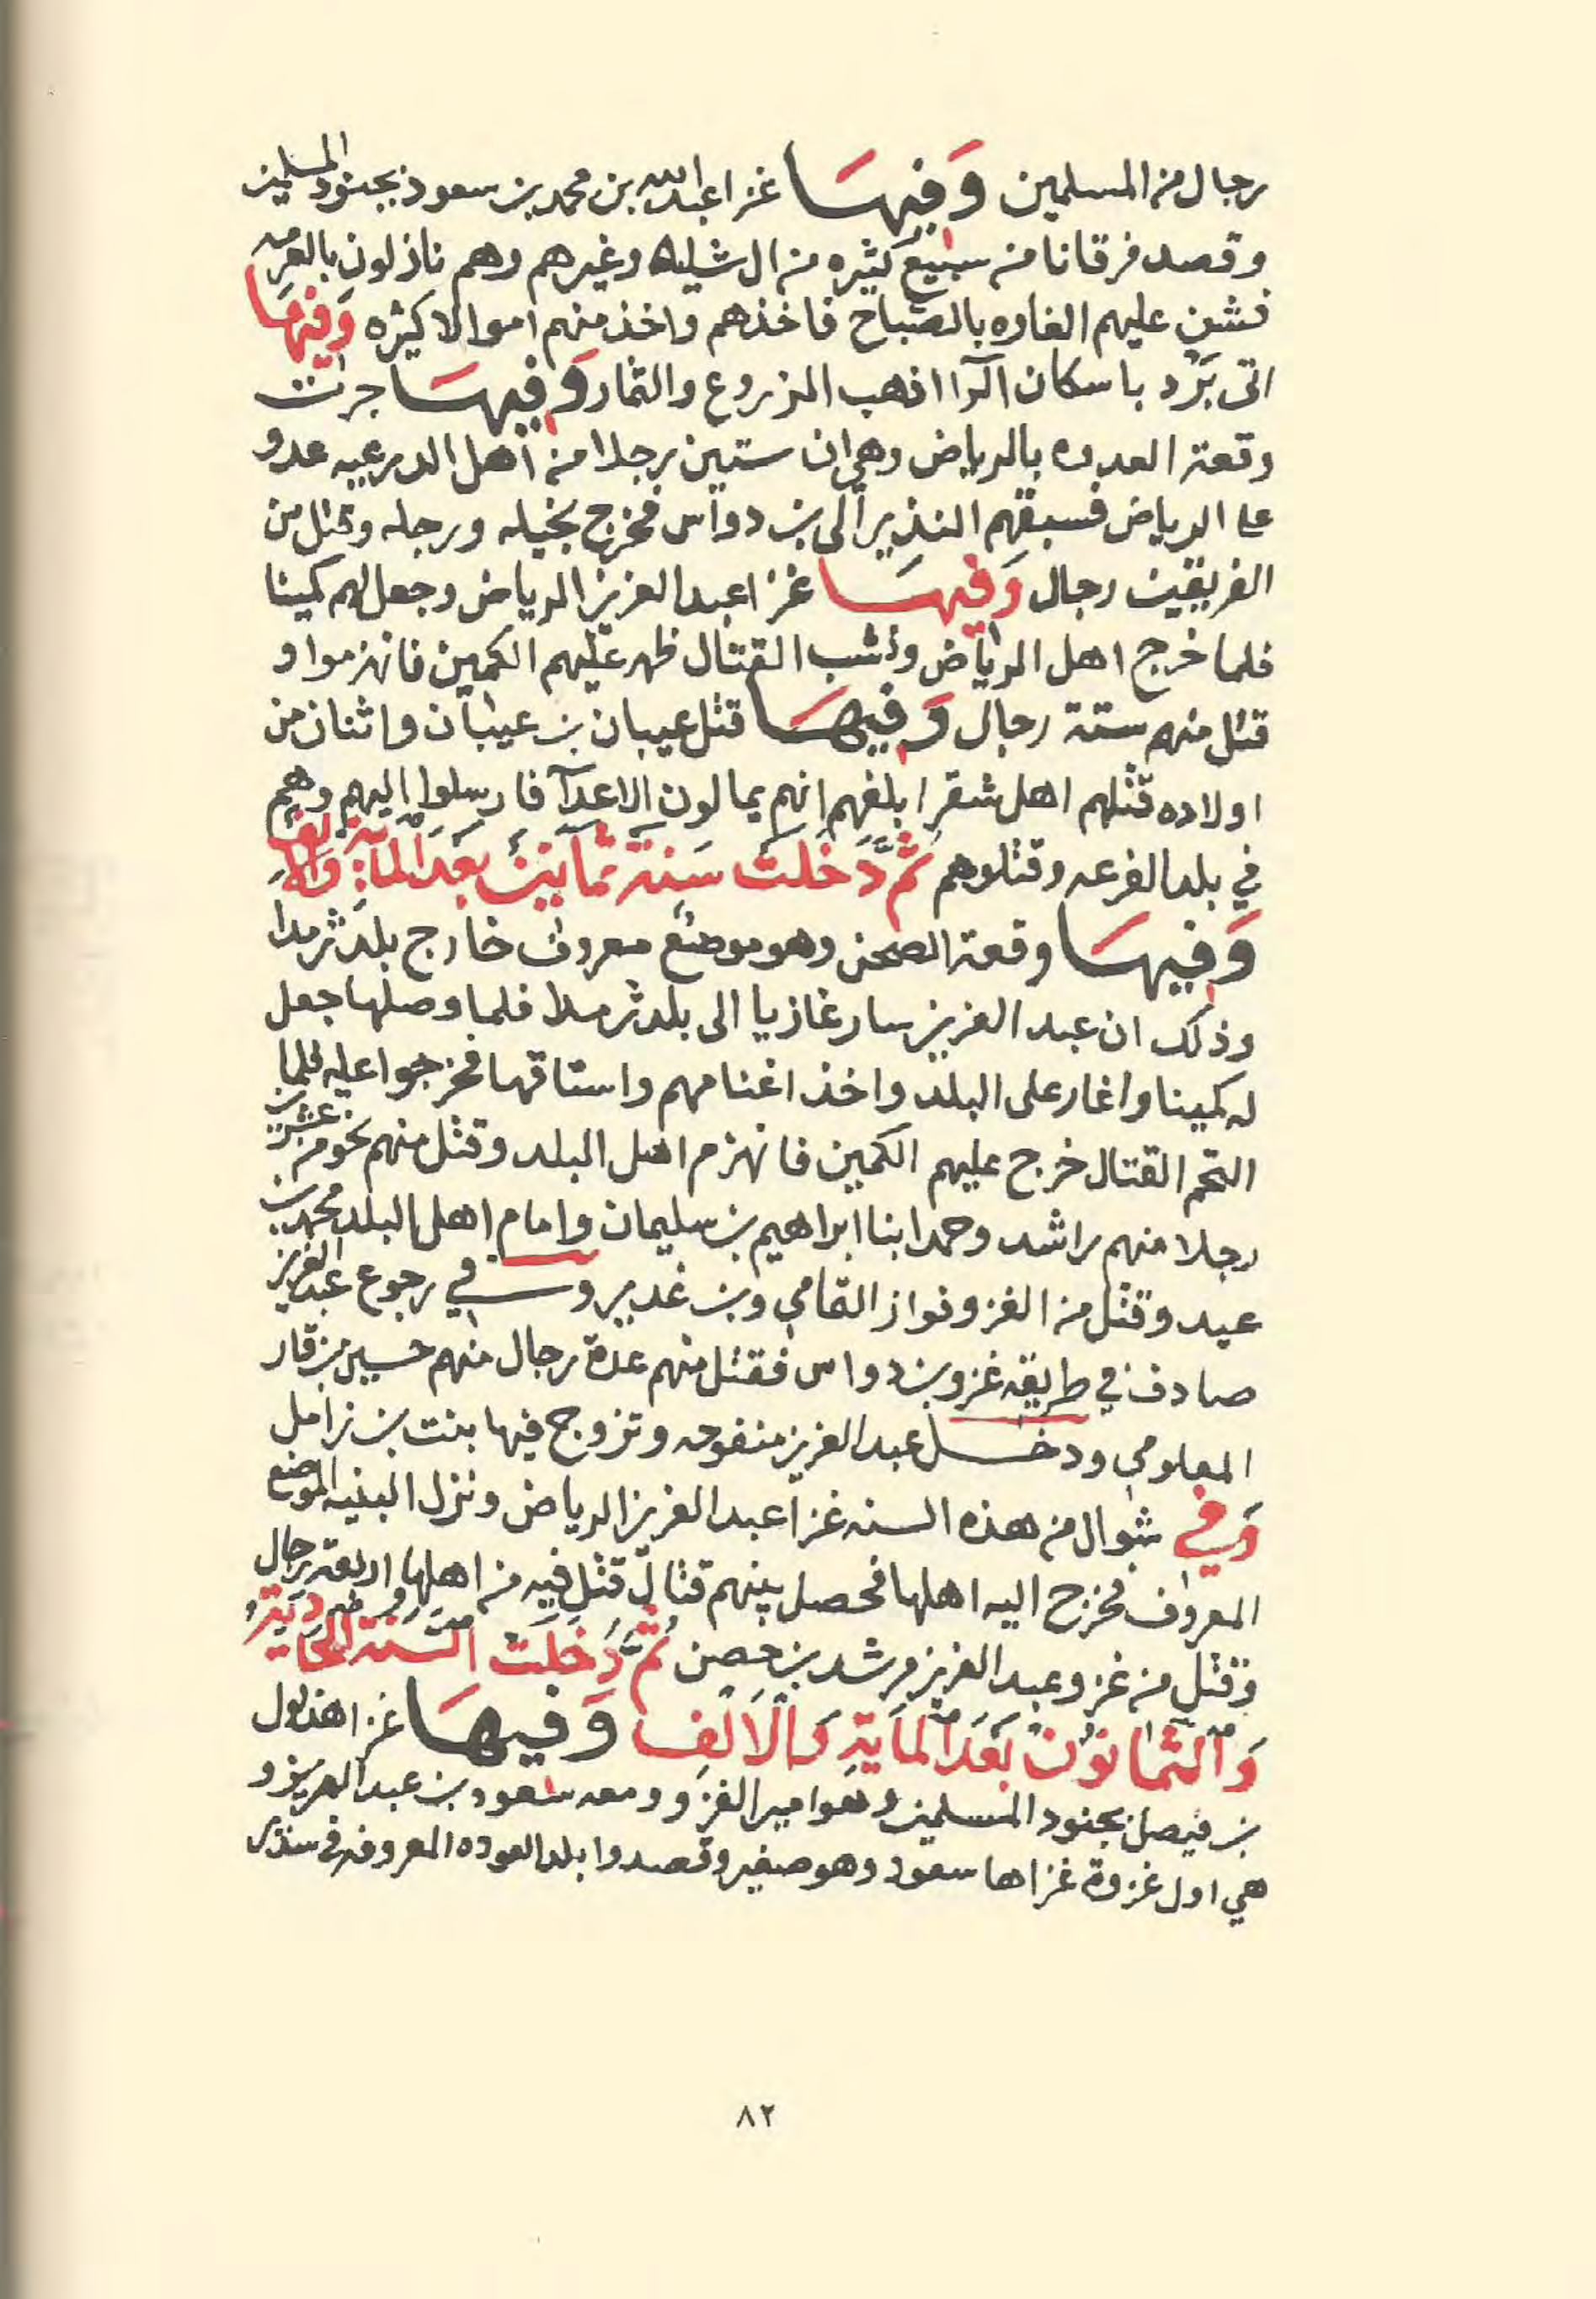 رجال من المسلمين وَفيهَا غزا عبدالله بن محمد بن سعود بجنود المسلمين
وقصد فرقانا من سبيع كثيره من ال شليه وغيرهم وهم نازلون بالعرمه
فشن عليهم الغاره بالصباح فاخذهم واخذ منهم اموالا كثيره وَفيهَا
اتى بَرَد باسكان الرآ اذهب الزروع والثمار وَفيهَا جرات
وقعة العدوه بالرياض وهي ان ستين رجلا من اهل الدرعيه عدو
علا الرياض فسبقهم النذير الى بن دواس فخرج بخيله ورجله وقتل من
الفريقين رجال وَفيهَا غزا عبدالعزيز الرياض وجعل لهم كمينا
فلما خرج اهل الرياض ونشب القتال ظهر عليهم الكمين فانهزموا و
قتل منهم ستة رجال وَفيهَا قتل عيبان بن عيبان واثنان من
اولاده قتلهم اهل شقرا بلغهم انهم يمالون الاعدآ فارسلوا اليهم وهم
في بلد الفرعه وقتلوهم ثُمَّ دَخَلَتْ سَنة ثمانين بعدَ المأية وَالالف
وَفِيهَا وقعة الصحن وهو موضع معروف خارج بلد ثرمدا
وذلك ان عبد العزيز سار غازيا الى بلد ثرمدا فلما وصلها جعل
له كمينا واغار على البلد واخذ اغنامهم واستاقها فخرجوا عليه فلما
التحم القتال خرج عليهم الكمين فانهزم اهل البلد وقتل منهم نحو من عشرين
رجلا منهم راشد وحمد ابنا ابراهيم بن سليمان وامام اهل البلد محمد بن
عيد وقتل من الغزو فواز التمامي وبن غدير وفي رجوع عبد العزيز
صادف في طريقه غزو بن دواس فقتل منهم عدة رجال منهم حسين بن قار
المعلومي ودخل عبد العزيز منفوحه وتزوج فيها بنت بن زامل
وَفي شوال من هذه السنه غزا عبد العزيز الرياض ونزل البنيه الموضع
المعروف فخرج اليه اهلها فحصل بينهم قتال قتل فيه من اهلها اربعة رجال
وقتل من غزو عبد العزيز مرشد بن حصن ثُمَّ دَخَلَتْ السَّنة الحَاديَةُ
وَالثمانوُنَ بَعَدَ المَاية وَالاَلفِ وَفيهَا غزا هذلول
بن فيصل بجنود المسلمين وهو امير الغزو ومعه سعود بن عبد العزيز و
هي اول غزوة غزاها سعود وهو صغير وقصدوا بلد العوده المعروفه في سدير
٨٢